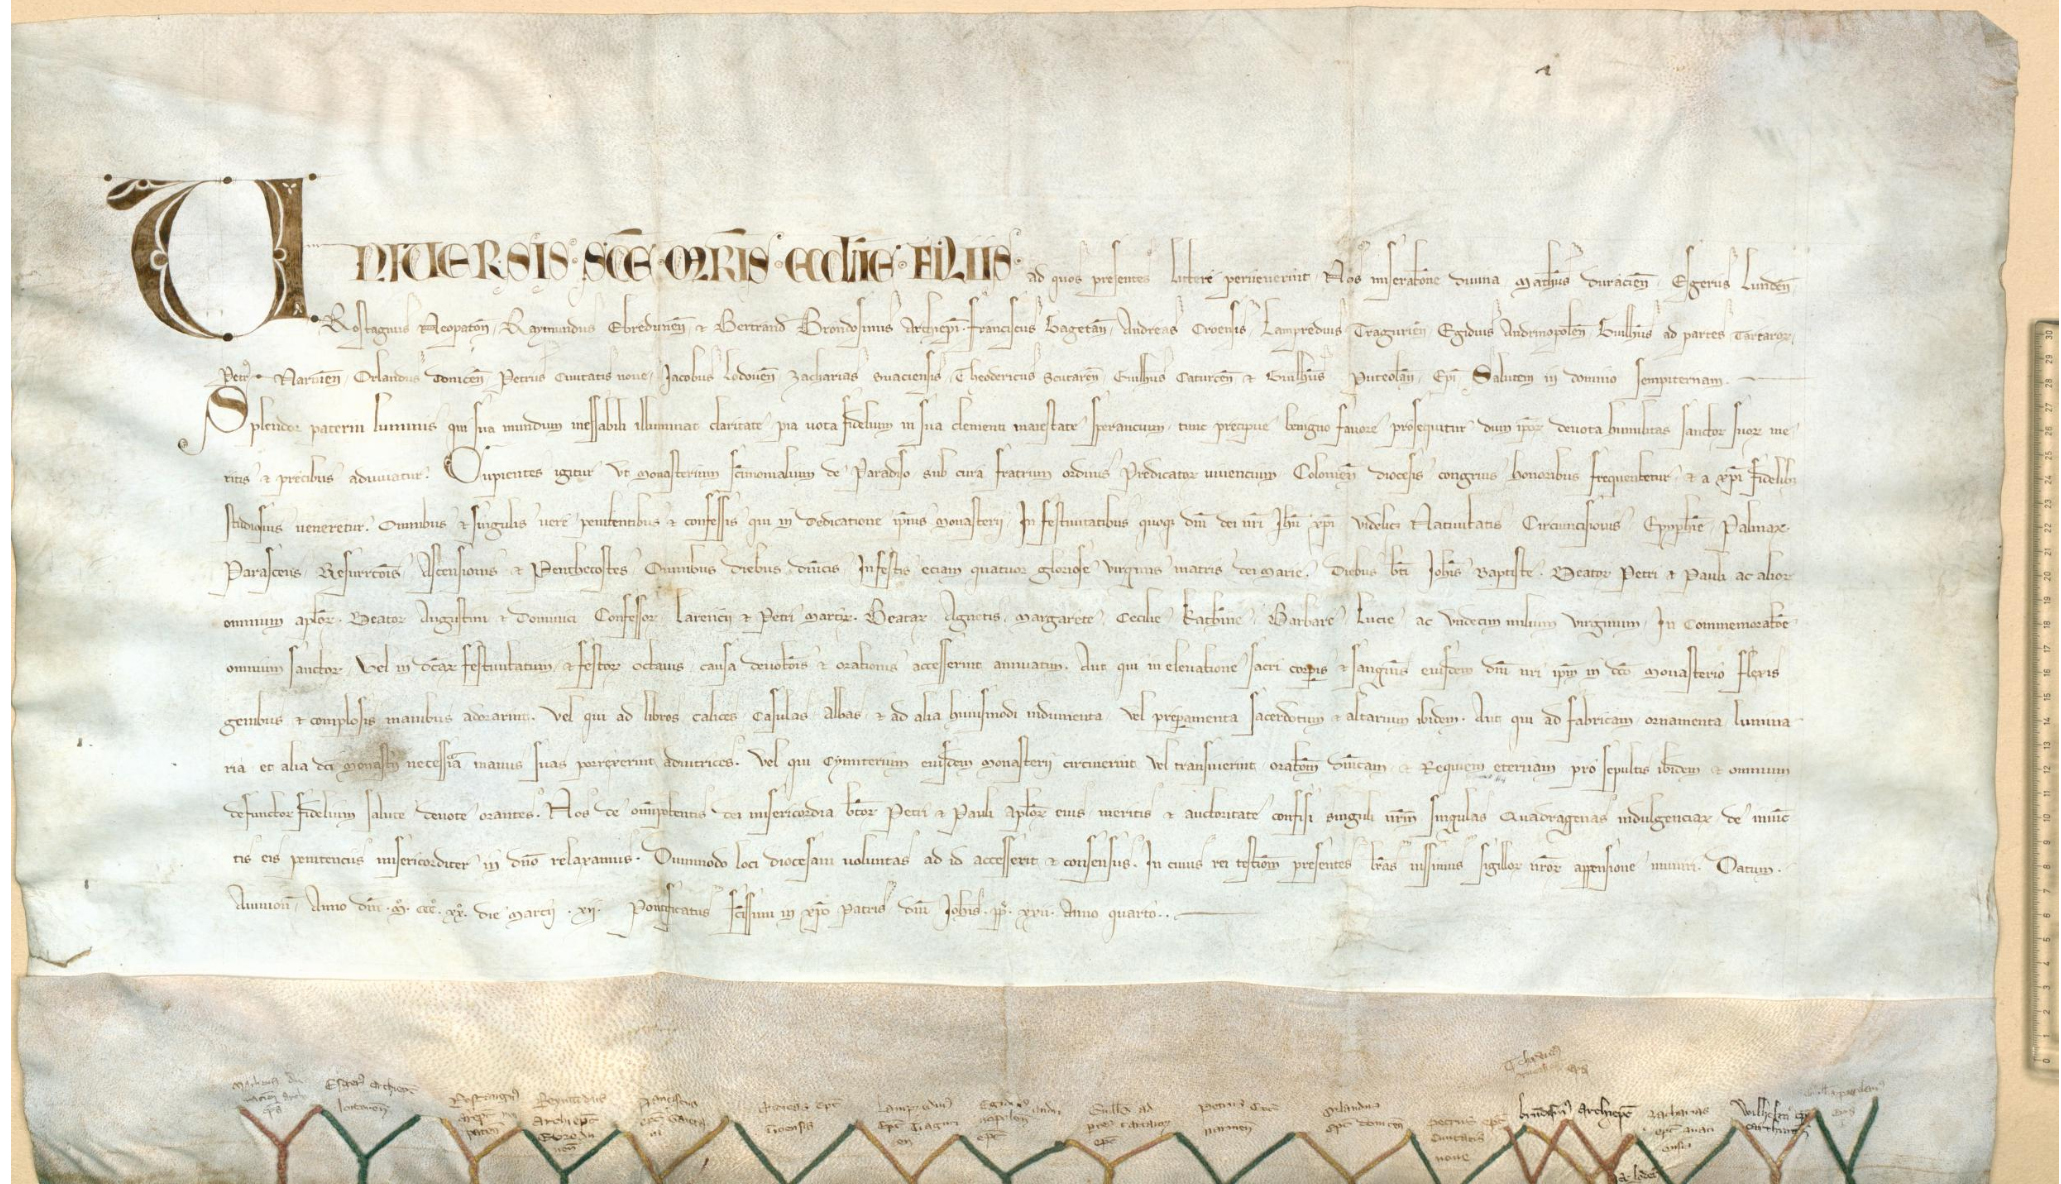 UNIVERSIS · SCE · MRIS · ECCLIE · FILIIS · ad quos presentes littere pervenerint Nos miseratone divina Matheus duracien Esgerus Lunden
Rostagnus Neopaton, Raymundus Ebredunen et Bertrand Brondosinus Archiepi. franciscus Gagetan, Andreas Croensis, Lampredius Tragurien Egidius Andrinopolen Guilhus ad partes Tartaror,
Petrus Narnien, Orlandus Domicen Petrus Civitatis nove, Jacobus Lodoven Zacharias Suaciensis, Theodericus Scutaren Guilhus Caturcen et Guilhus Puteolan, Epi Salutem in domino sempiternam.
Splendor paterni luminis qui sua mundum ineffabili illuminat claritate pia vota fidelium in sua clementi maiestate sperancium, tunc precipue benigno favore prosequitur dum ipsor devota humilitas sanctor suor me
ritis et precibus adiuvatur. Cupientes igitur ut monasterium scimonialium de Paradiso sub cura fratrum ordinis Predicator vivencium Colonien diocesis congruis honoribus frequentetur et a xpi fidelibz
studiosius veneretur. Omnibus et singulis vere penitentibus et confessis qui in Dedicatione ipius Monasterii, In festivitatibus quoqz dni dei nri Jhu xpi videlicz Nativitatis Circuncisionis Epyphie, Palmar,
Parasceus, Resurrctois, Ascensionis et Penthecostes, Omnibus diebus dnicis, In festis eciam quatuor gloriose virginis matris dei Marie. Diebus bti Johis Baptiste. Beator Petri et Pauli ac alior
omnium aplor. Beator Augustini et Dominici Confessor, Larencii et Petri Martir. Beatar Agnetis, Margarete, Cecilie, Katherine, Barbare, Lucie, ac Undecim milium virginum, In Commemoratoe
omnium sanctor, Vel in dcar festivitatum, et festor octavis, causa devotois et orationis accesserint annuatim. Aut qui in elevatione sacri corporis et sanguis eiusdem dni nri ipm in dco Monasterio flexis
genibus et complosis manibus adorarint. Vel qui ad libros, calices, Casulas, Albas, et ad alia huiusmodi indumenta vel preparamenta sacerdotum et altarium ibidem. Aut qui ad fabricam, ornamenta, lumina
ria et alia dci monasterii necessia manus suas porrexerint adiutrices. Vel qui Cymiterium eiusdem Monasterii circuierint vel transiverint, oratom dnicam, et Requiem eternam pro sepultis ibidem et omnium
defunctor fidelium salute devote orantes. Nos de omipotentis dei misericordia btor Petri et Pauli aplor eius meritis et auctoritate confisi singuli nrm singulas Quadragenas indulgenciar de iniuc
tis eis penitenciis misericorditer in dno relaxamus. Dummodo loci diocesani voluntas ad id accesserit et consensus. In cuius rei testiom presentes lras iussimus sigillor nror appensione muniri. Datum.
Avinion, Anno dni .m. ccc. xx. die Marcii .xij. Pontificatus scissimi in xpo Patris dni Johis. pp. xxii. Anno quarto..
Esgerus archiepc. lundonen
Andreas epc Croensis
Lampredius epc Tragurien
Guills ad ptes tartaror epc
Petrus epc narnien
orlandus epc domicen
petrus epc civitatis nove
brundusin archiepc
zacharias epc suaci